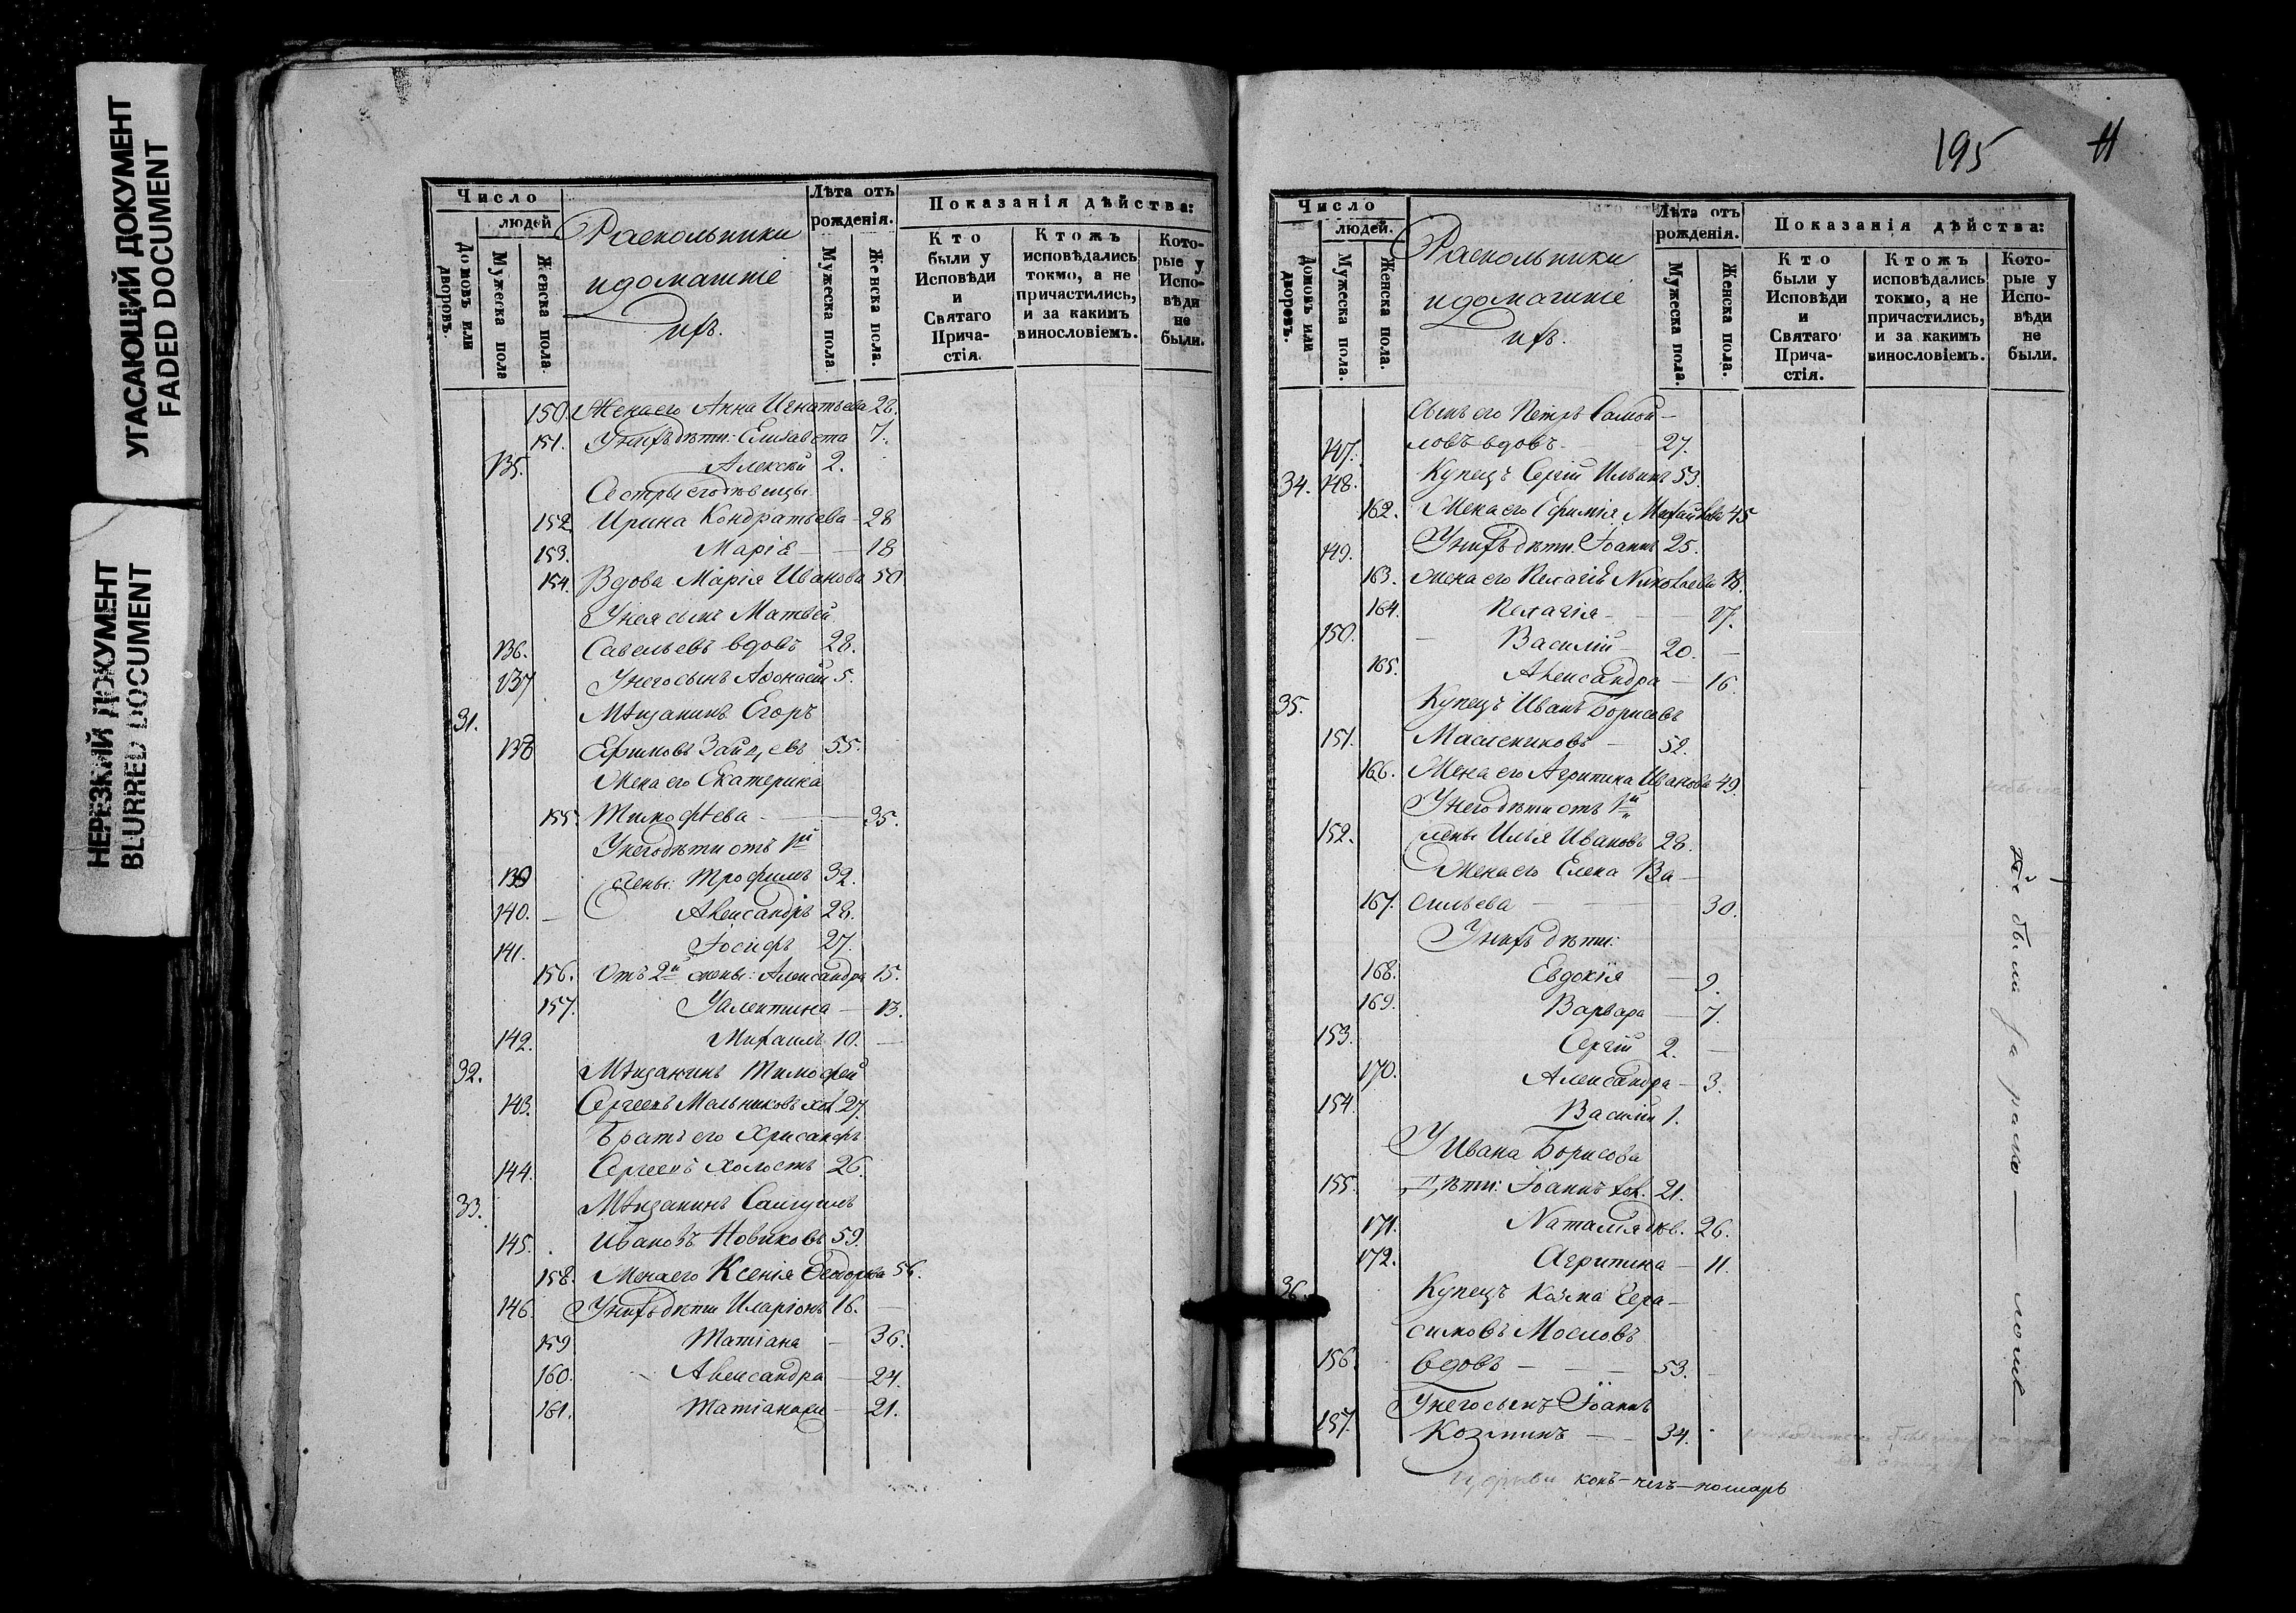 УГАСАЮЩИЙ ДОКУМЕНТ
FADED DOCUMENT
НЕРЕЗКИЙ ДОКУМЕНТ
BLURRED DOCUMENT
Число
людей
Домовъ или дворовъ.
Мужеска пола
Женска пола.
Раскольники
и домашніе
ихъ.
Лѣта отъ рожденія.
Мужеска пола
Женска пола.
Показанія дѣйства:
Кто были у Исповѣди и Святаго Прича-стія.
Ктожъ исповѣдались токмо, а не причастились, и за какимъ винословіемъ.
Кото-рые у Испо-вѣди не были.
150. Жена его Анна Игнатьева 28.
151. У нихъ дѣти: Елисавета 7.
135. Алексѣй 2.
Сестры его дѣвицы
152 Ирина Кондратьева — 28
153. Марія — — 18
154. Вдова Марія Иванова 50
У нея сынъ Матвей
136. Савельевъ вдовъ 28.
137 У него сынъ Афонасій 5.
31. Мѣщанинъ Егоръ
138 Ефимовъ Зайцевъ 55.
Жена его Екатерина
155. Тимофѣева — 35.
У него дѣти отъ 1й
139 жены: Трофимъ 32.
140. — Александръ 28.
141. Іосифъ 27.
156. Отъ 2й жены: Александра 15.
157. Уалентина — 13.
142. Михаилъ 10. —
32. Мѣщанинъ Тимофей
143. Сергеевъ Мельниковъ хол. 27.
Братъ его Хрисанфъ
144. Сергеевъ холостъ 26
33. Мѣщанинъ Самуилъ
145. Ивановъ Новиковъ 59.
158. Жена его Ксенія Феодорова 56.
146. У нихъ дѣти Иларіонъ 16. —
159 Татіана — 36.
160. Александра — 24.
161. Татіана — 21.
195
11
Число
людей.
Домовъ или дворовъ.
Мужеска пола.
Женска пола.
Раскольники
и домашніе
ихъ.
Лѣта отъ рожденія.
Мужеска пола.
Женска пола.
Показанія дѣйства:
Кто были у Исповѣди и Святаго Прича-стія.
Ктожъ исповѣдались токмо, а не причастились, и за какимъ винословіемъ.
Кото-рые у Испо-вѣди не были.
Сынъ его Петръ Самой—
147. ловъ вдовъ — 27.
34. 148. Купецъ Сергій Ильинъ 53.
162. Жена его Ефимія Михайлова 45
149. У нихъ дѣти: Іоаннъ 25.
163. жена его Пелагія Николаева 18.
164. Пелагія — — 17.
150. — Василій — 20. —
165. Александра — 16.
35. Купецъ Иванъ Борисовъ
151. Маслениковъ — 52.
166. Жена его Агрипина Иванова 49.
У него дѣти отъ 1й
152. жены Илья Ивановъ 28.
Жена его Елена Ва—
167. сильева — — 30.
У нихъ дѣти:
168. Евдокія — 9.
169. Варвара — 7.
153. Сергій 2. —
170. Александра — 3.
154. Василій 1.
У Ивана Борисова
155. дѣти: Іоаннъ хол. 21.
171. Наталія дѣв. 26.
172. Агрипина — 11.
36. Купецъ Козма Гера—
симовъ Масловъ
156. вдовъ — — 53.
У него сынъ Іоаннъ
157. Козминъ — — 34.
Не были за раско——ломъ